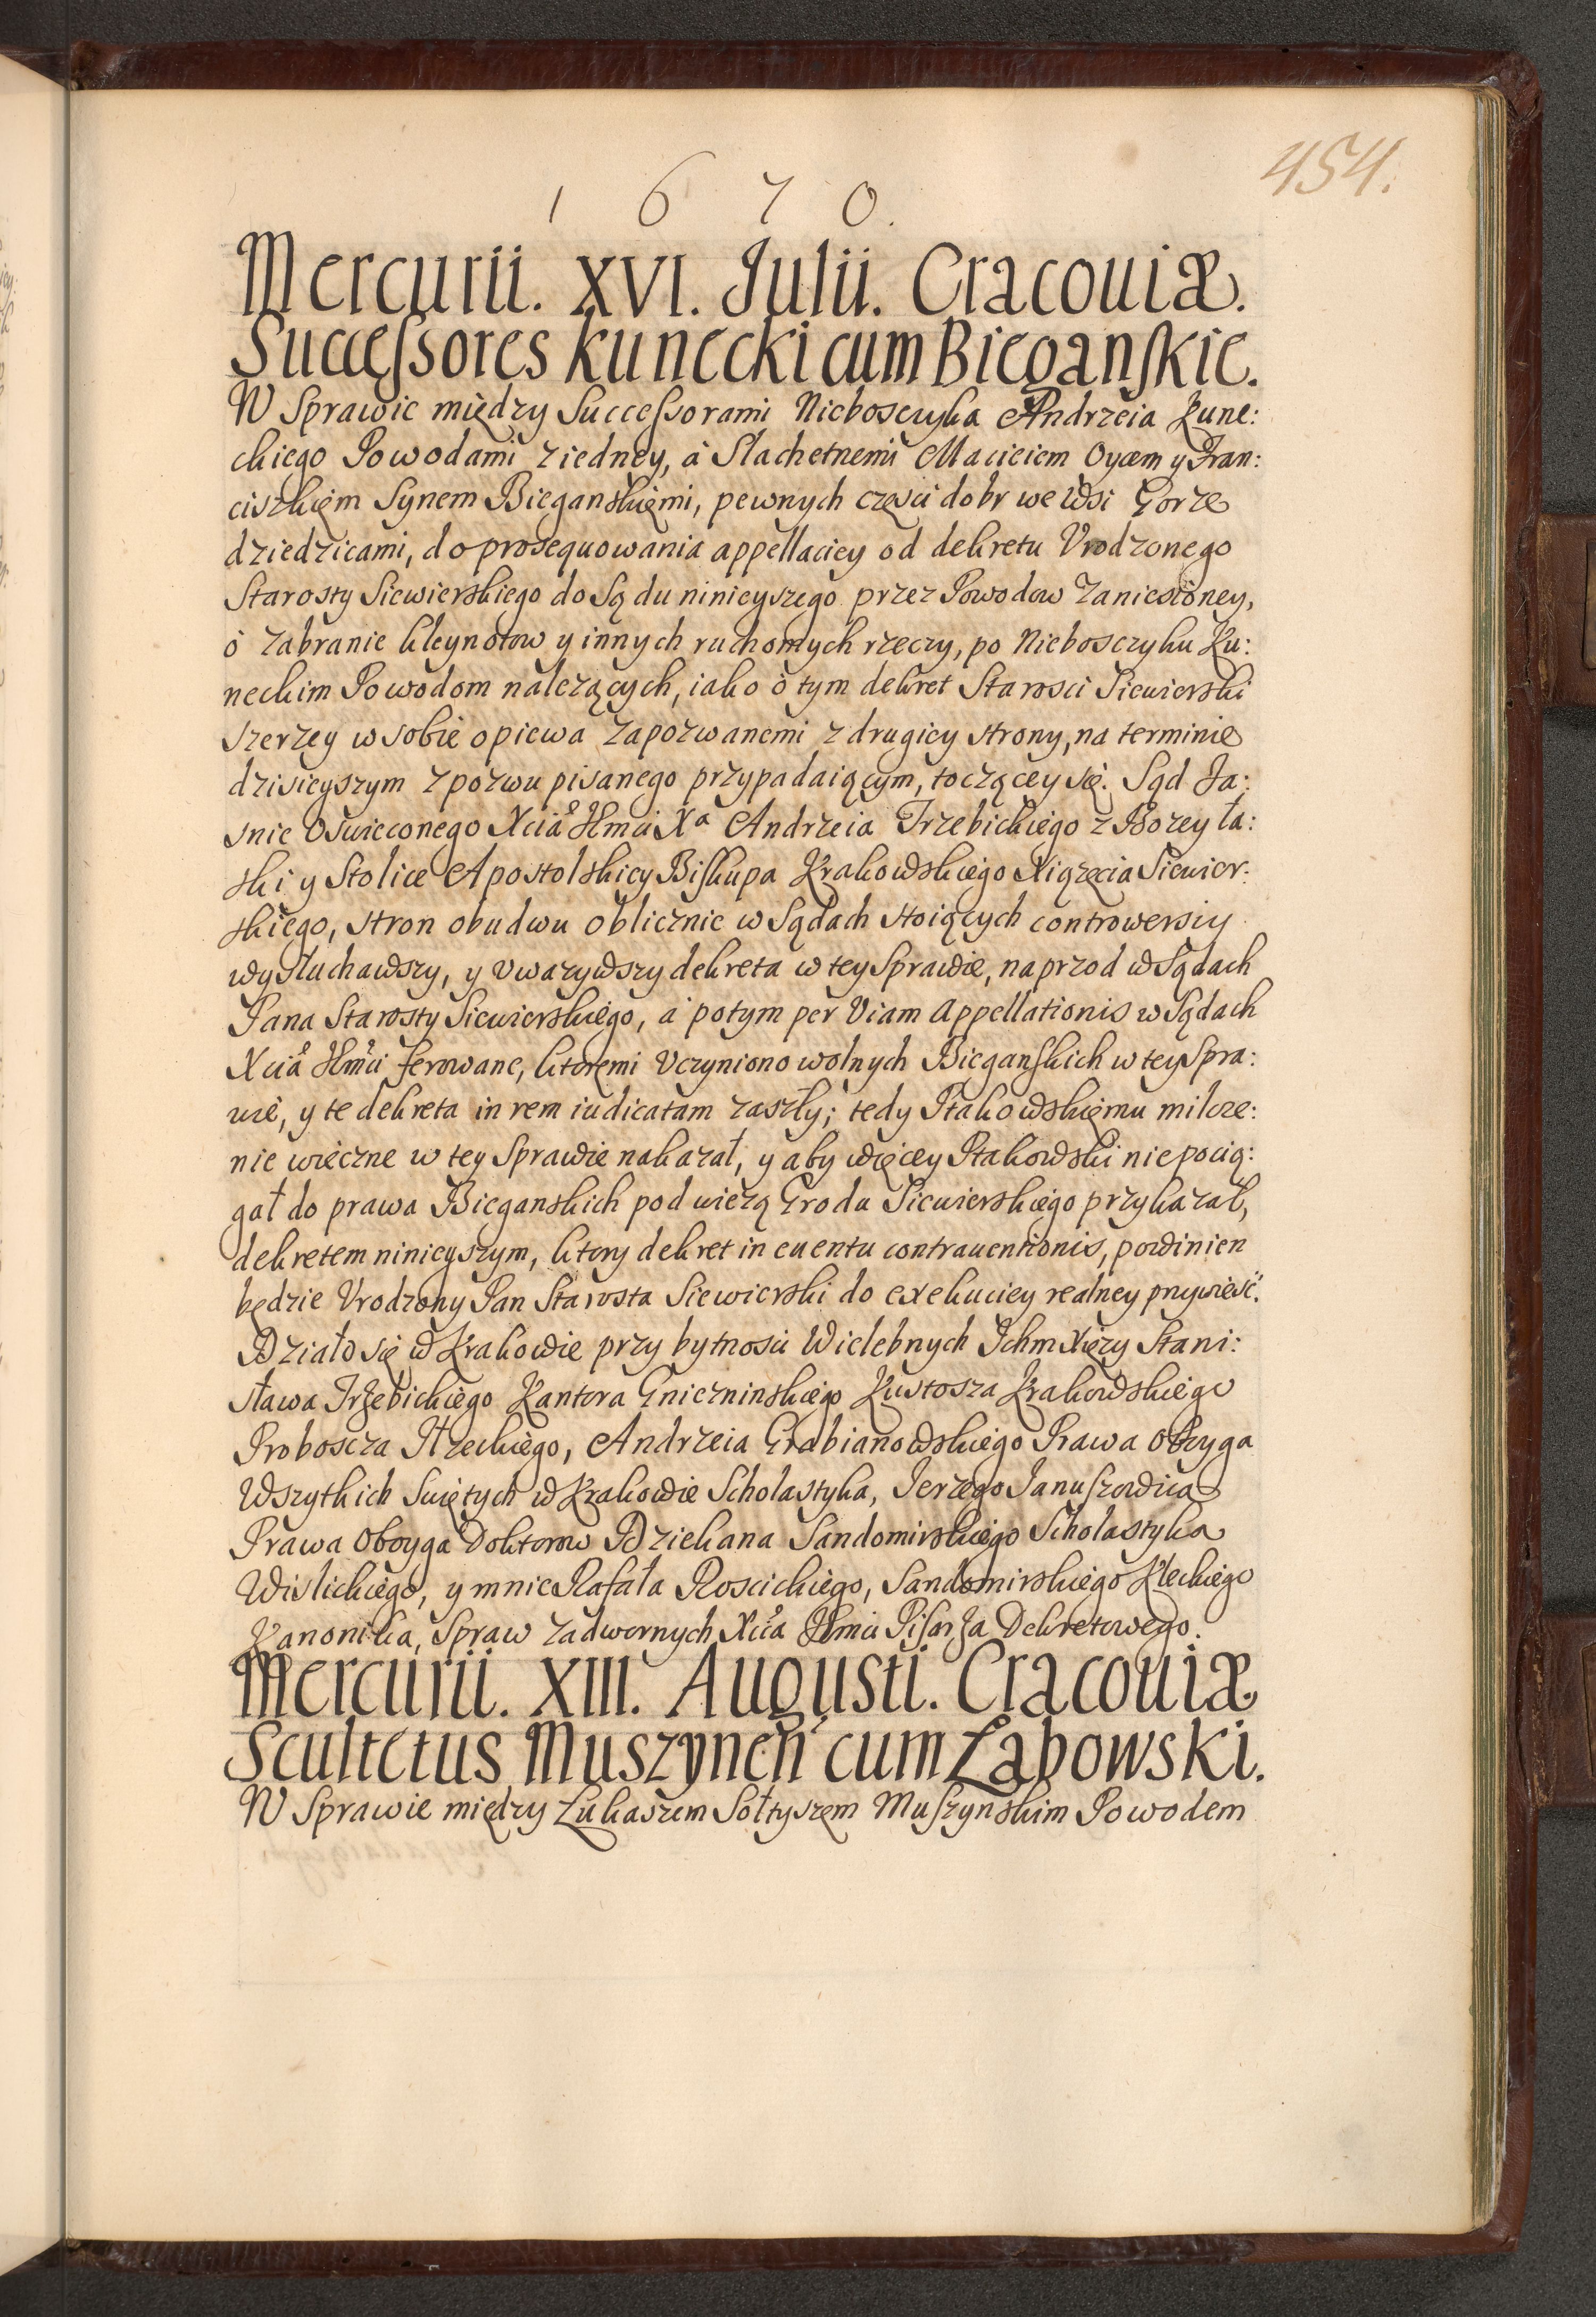 454.
1670.
Mercurii. XVI. Julii. Cracouiæ.
Succeſsores Kunecki cum Bieganſkie.
W Sprawie między Succeſsorami Nieboszczyka Andrzeia Kune:
ckiego Powodami z iedney, á Slachetnemi Macieiem Oycem y Fran:
ciszkięm Synem Bieganskięmi, pewnych częsci dobr we Wsi Gorze
dziedzicami, do prosequowania appellaciey od dekretu Vrodzonego
Starosty Siewierskiego do Sądu ninieyszego przez Powodow zaniesioney,
ó zabranie kleynotow y innych ruchomych rzeczy, po Nieboszczyku Ku:
neckim Powodom nalezących, iako ó tym dekret Starosci Siewierski
szerzey w sobie opiewa zapozwanemi z drugiey strony, na terminie
dzisieyszym z pozwu pisanego przypadaiącym, toczącey się. Sąd Ja:
snie Oswieconego Xciá Jmci Xa Andrzeia Trzebickiego z Bozey ła:
ski y Stolice Apostolskiey Biſkupa Krakowskiego Xiązęcia Siewier:
skiego, stron obudwu oblicznie w Sądach stoiących controwersiy
wysłuchawszy, y vwazywszy dekreta w tey Sprawie, naprzod w Sądach
Pana Starosty Siewierskiego, á potym per Viam Appellationis w Sądach
Xciá Jmci ferowane, ktoremi vczyniono wolnych Bieganſkich w tey Spra:
wie, y te dekreta in rem iudicatam zaszły; tedy Ptakowskięmu milcze:
nie wieczne w tey Sprawie nakazał, y aby więcey Ptakowski nie pocią:
gał do prawa Bieganskich pod wiezą Grodu Siewierskiego przykazał,
dekretem ninieyszym, ktory dekret in euentu contrauentionis, powinien
będzie Vrodzony Pan Starosta Siewierski do exekuciey realney przywieść.
Działo się w Krakowie przy bytnosci Wielebnych Ichm Xięzy Stani:
sława Trzebickiego Kantora Gniezninskiego Kustosza Krakowskiego
Proboscza Itzeckiego, Andrzeia Grabianowskiego Prawa Oboyga
Wszytkich Swiętych w Krakowie Scholastyka, Jerzego Januſzowica
Prawa Oboyga Doktorow Dziekana Sandomirskiego Scholastyka
Wislickiego, y mnie Rafała Roscickiego, Sandomirskiego Kleckiego
Kanonika, Spraw zadwornych Xcia Jmci Piſarza Dekretowego.
Mercurii. XIII. Augusti. Cracouiæ
Scultetus Muszynen cum Łabowski.
W Sprawie między Łukaszem Sołtyszem Muſzynskim Powodem